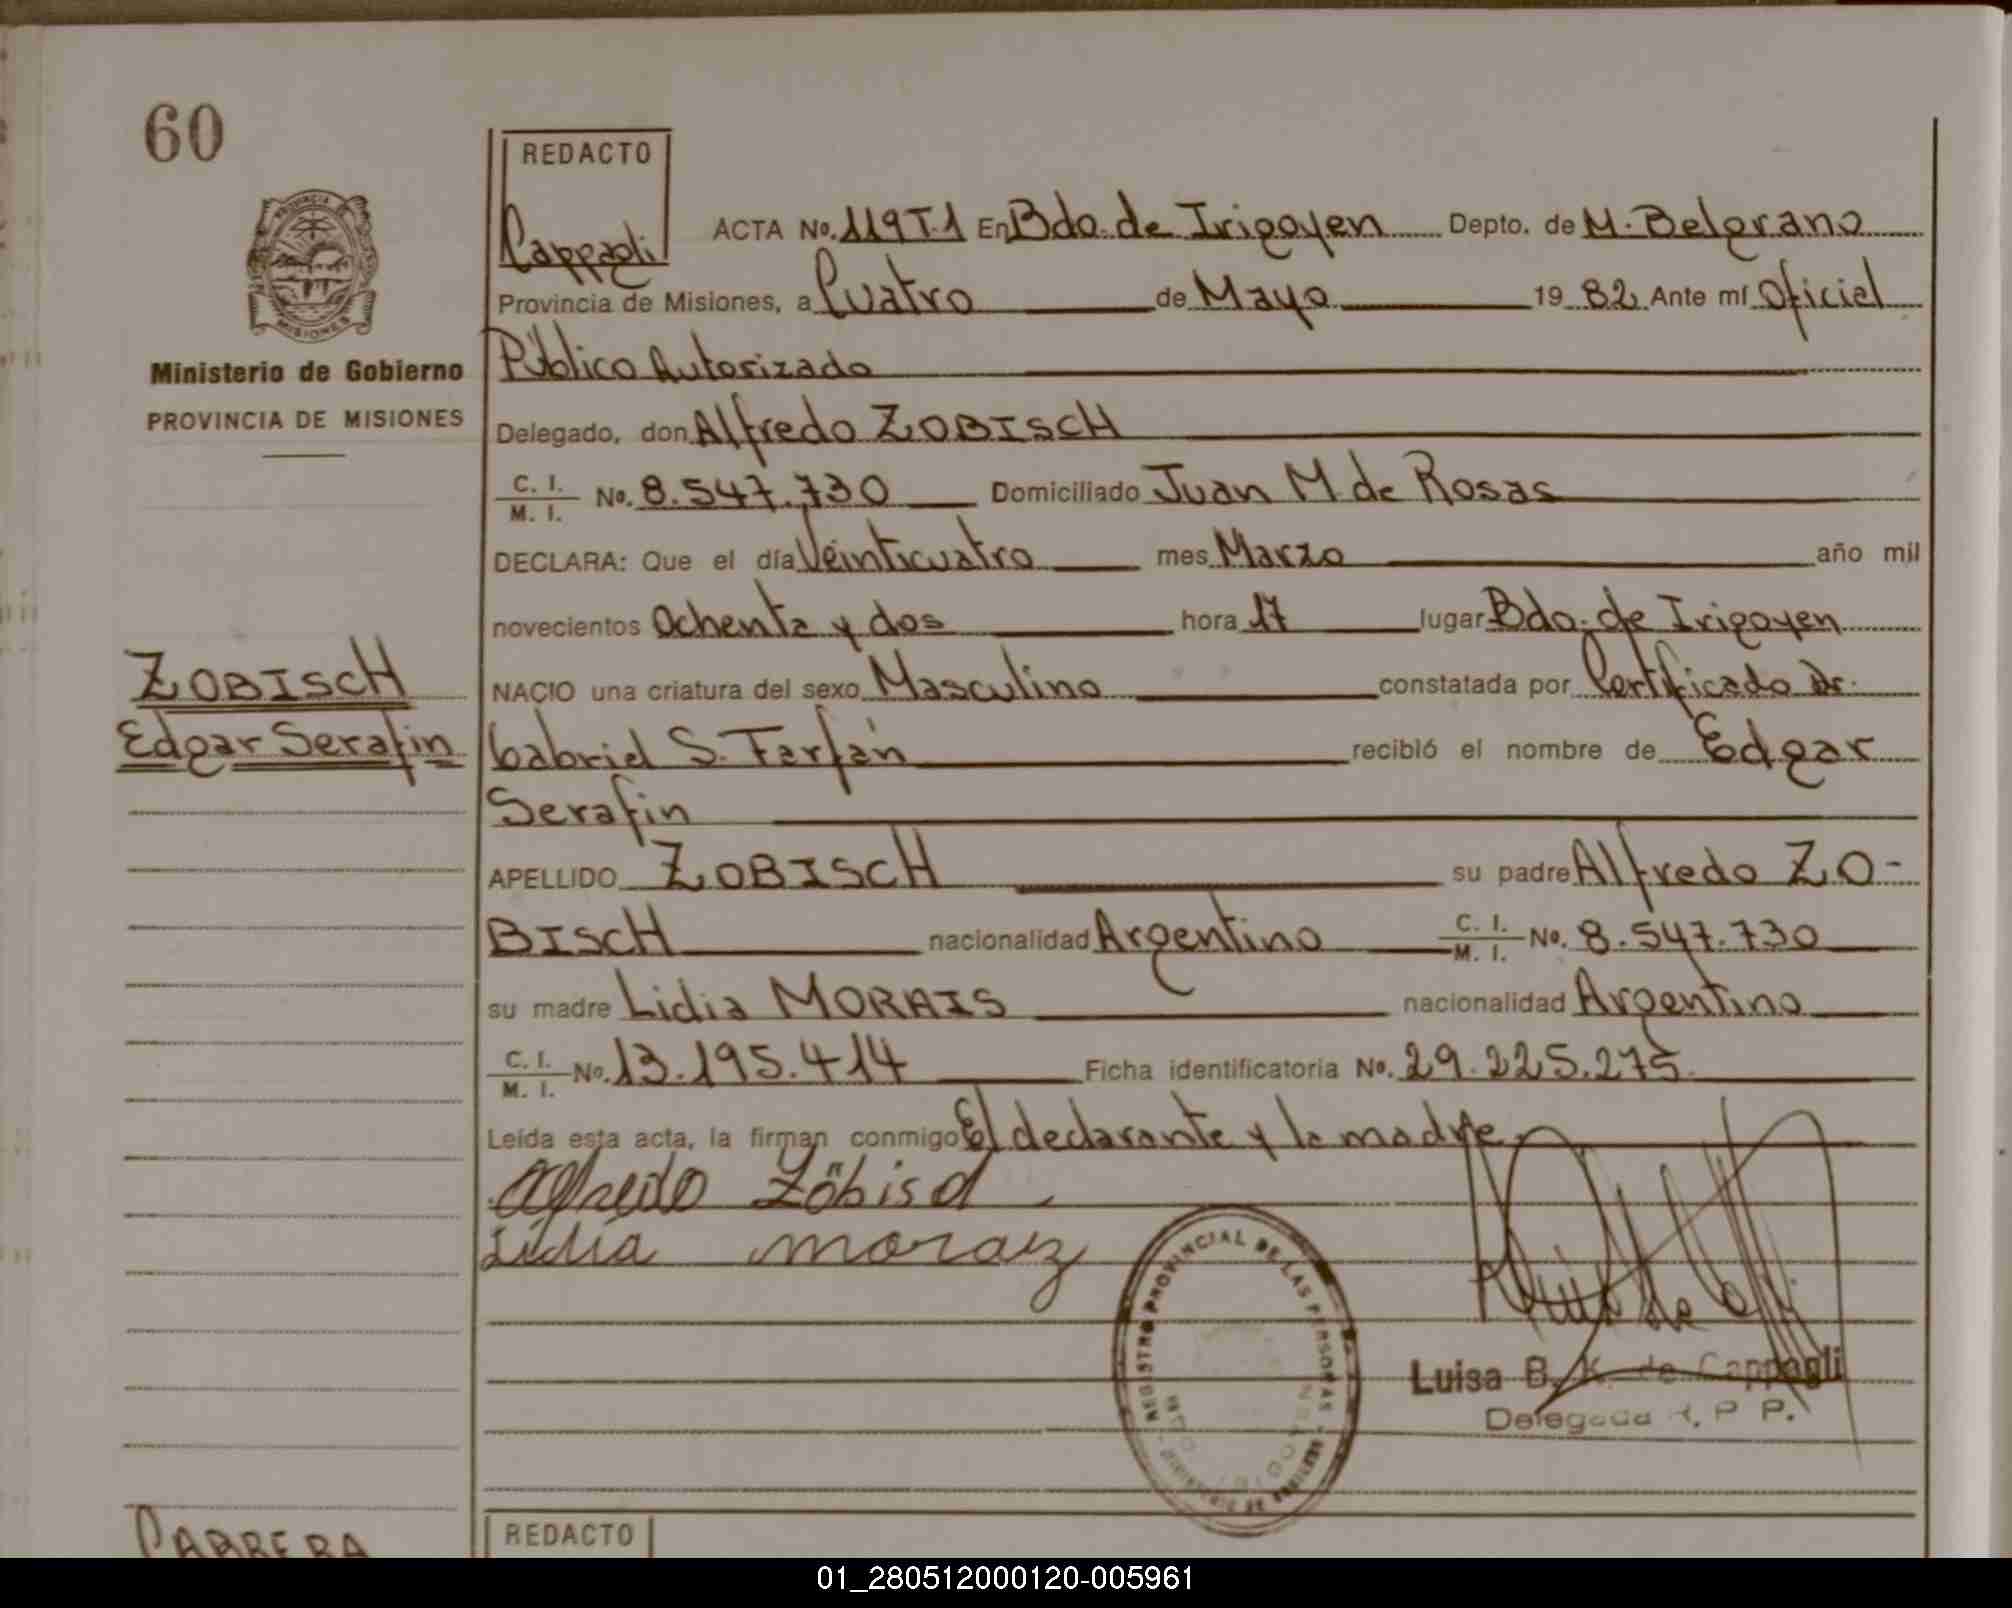 60
REDACTO
Cappagli
ACTA No. 119 T.1 En Bdo. de Irigoyen Depto. de M. Belgrano
Provincia de Misiones, a Cuatro de Mayo 19 82 Ante mí Oficial
Público Autorizado
Delegado, don Alfredo ZOBISCH
C. I. / M. I. No. 8.547.730 Domiciliado Juan M. de Rosas
DECLARA: Que el día Veinticuatro mes Marzo año mil
novecientos Ochenta y dos hora 17 lugar Bdo. de Irigoyen
NACIO una criatura del sexo Masculino constatada por Certificado Dr.
Gabriel S. Farfán recibió el nombre de Edgar
Serafin
APELLIDO ZOBISCH su padre Alfredo ZO-
BISCH nacionalidad Argentino C. I. / M. I. No. 8.547.730
su madre Lidia MORAIS nacionalidad Argentino
C. I. / M. I. No. 13.195.414 Ficha identificatoria No. 29.225.275.
Leída esta acta, la firman conmigo El declarante y la madre.
Alfredo Zöbisch
Lidia moraiz
PROVINCIA DE
MISIONES
Ministerio de Gobierno
PROVINCIA DE MISIONES
ZOBISCH
Edgar Serafin
REGISTRO PROVINCIAL DE LAS PERSONAS
Luisa B. K. de Cappagli
Delegada R. P. P.
CABRERA
REDACTO
01_280512000120-005961